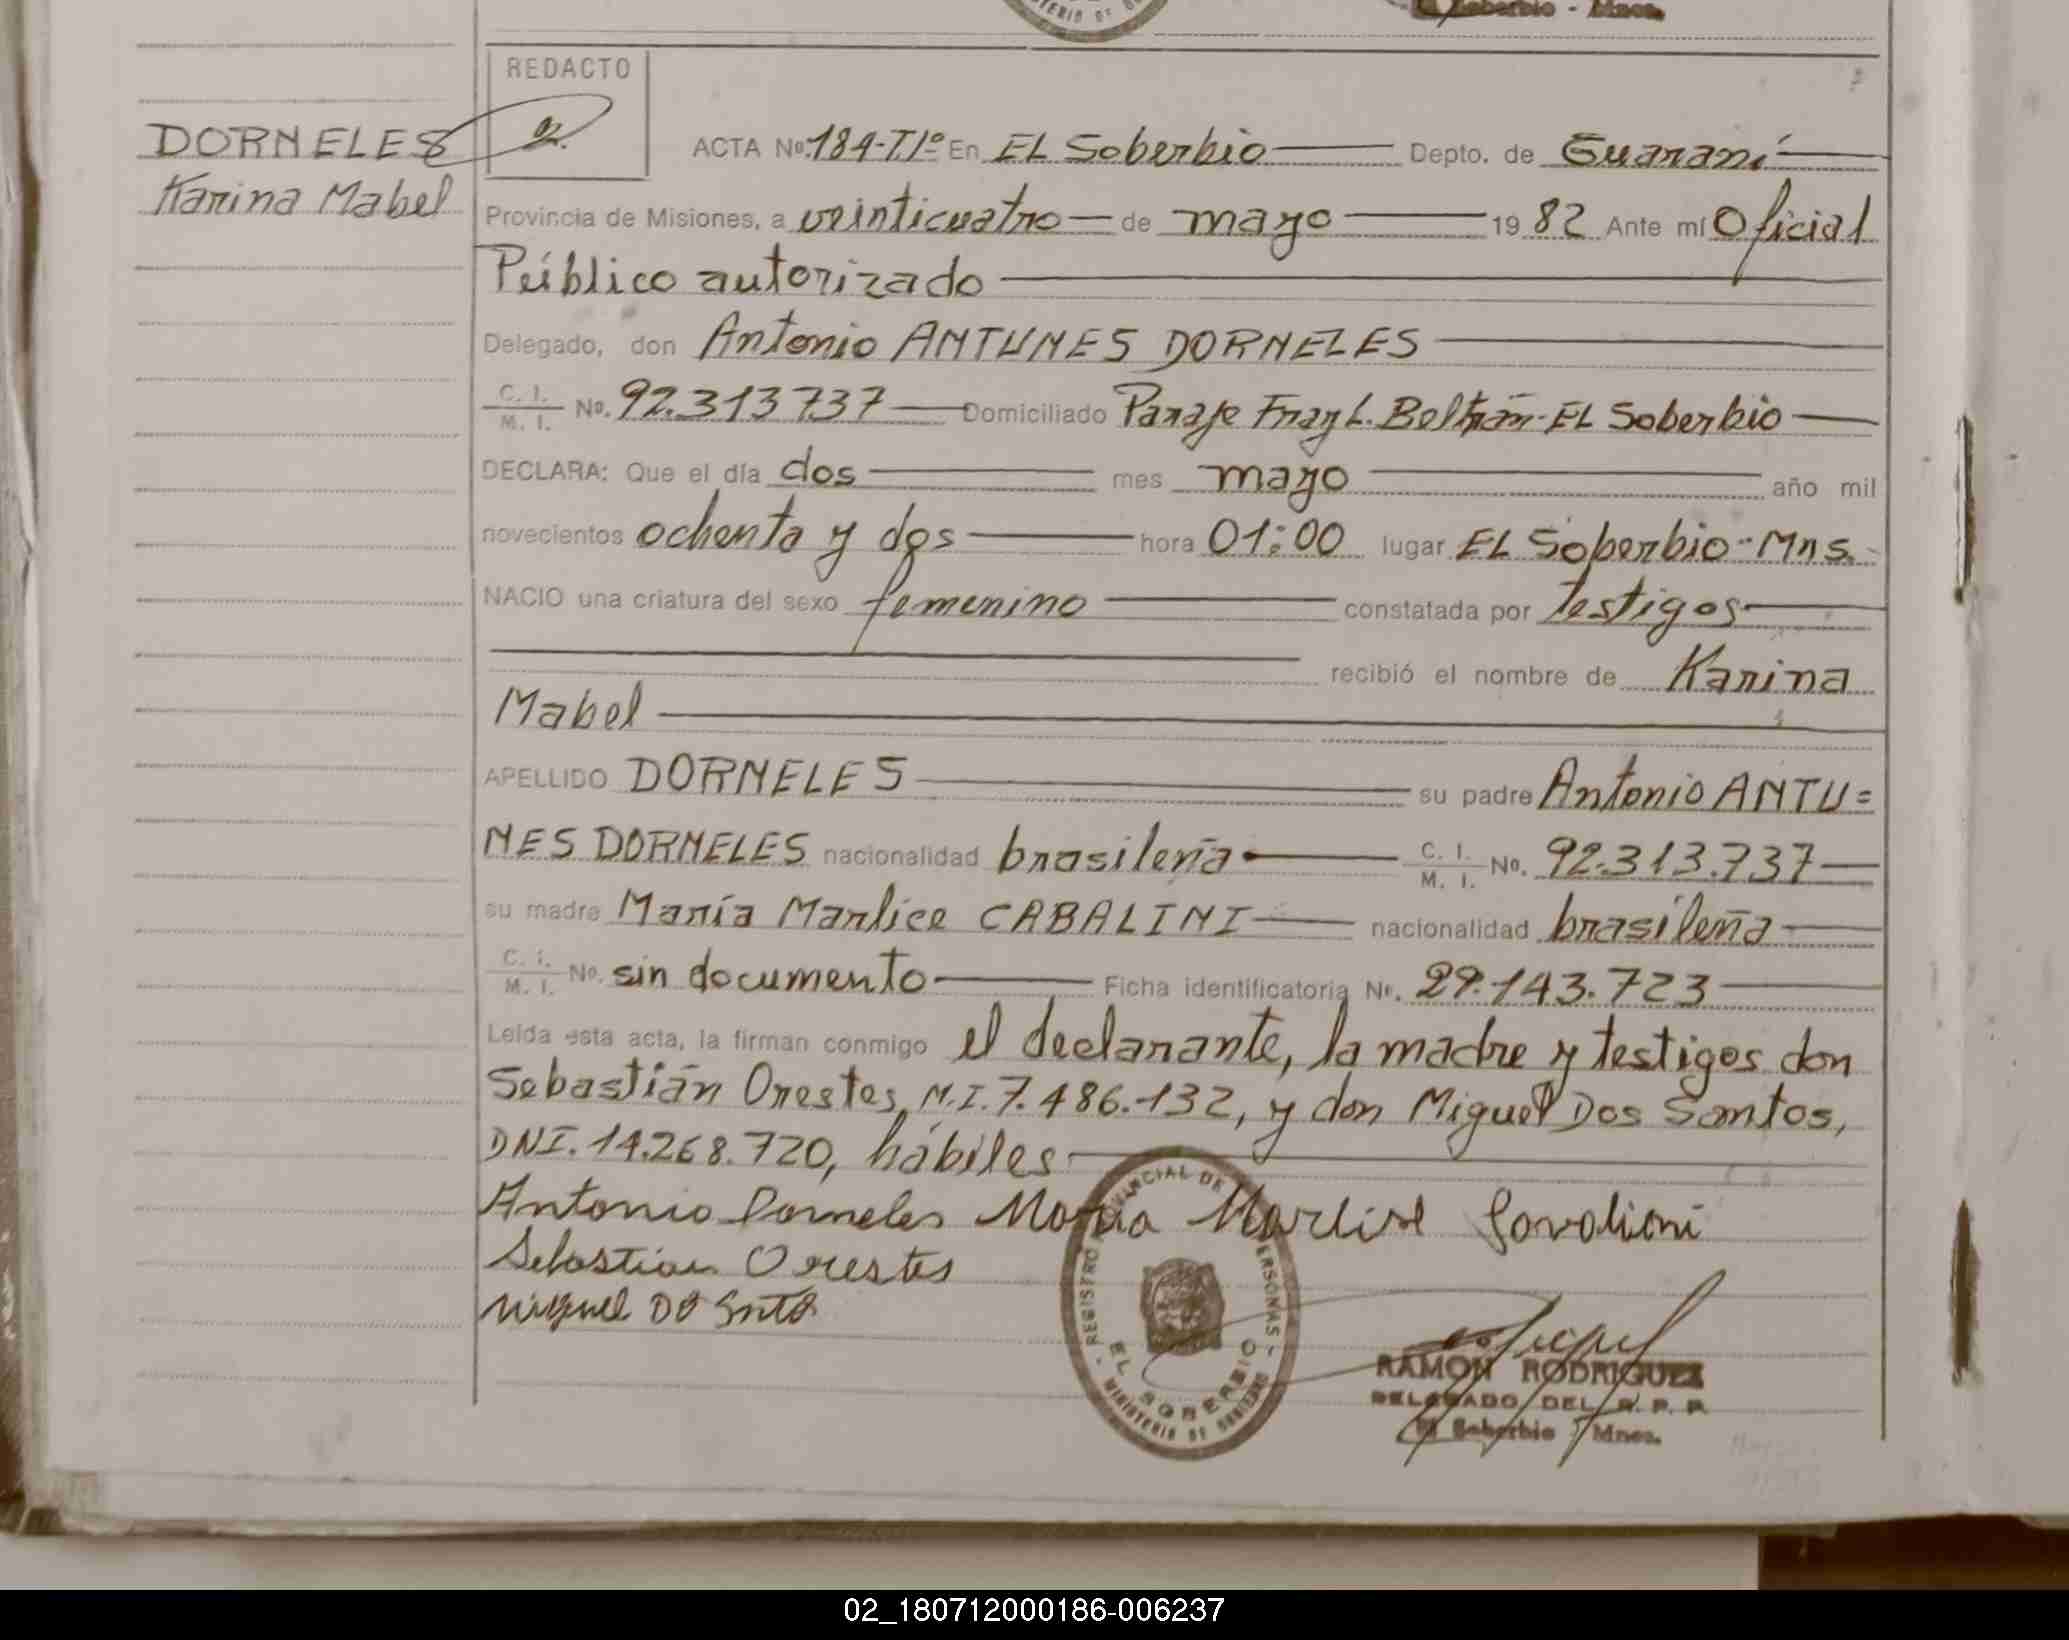 MINISTERIO DE
El Soberbio - Mnes.
REDACTO
DORNELES
Karina Mabel
ACTA No. 184-TIº En EL Soberbio Depto. de Guaraní
Provincia de Misiones, a veinticuatro de mayo 1982 Ante mí Oficial
Público autorizado
Delegado, don Antonio ANTUNES DORNELES
C. I. / M. I. No. 92.313737 Domiciliado Paraje Fray L. Beltrán - EL Soberbio
DECLARA: Que el día dos mes mayo año mil
novecientos ochenta y dos hora 01:00 lugar EL Soberbio - Mns.
NACIO una criatura del sexo femenino constatada por testigos
recibió el nombre de Karina
Mabel
APELLIDO DORNELES su padre Antonio ANTU=
NES DORNELES nacionalidad brasileña C. I. / M. I. No. 92.313.737
su madre María Marlice CABALINI nacionalidad brasileña
C. I. / M. I. No. sin documento Ficha identificatoria No. 29.143.723
Leída esta acta, la firman conmigo el declarante, la madre y testigos don
Sebastián Orestes, M.I. 7.486.132, y don Miguel Dos Santos,
DNI. 14.268.720, hábiles
Antonio Dorneles Maria Marlise Cavalini
Sebastian Orestes
Miguel DO Snto
REGISTRO PROVINCIAL DE PERSONAS
EL SOBERBIO
MINISTERIO DE GOBIERNO
RAMON RODRIGUEZ
DELEGADO DEL R. P. P.
El Soberbio - Mnes.
02_180712000186-006237